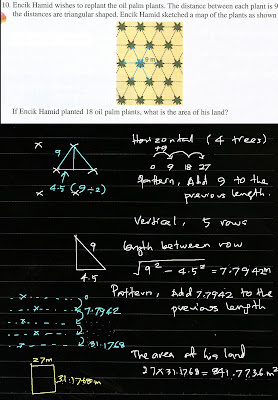 10. Encik Hamid wishes to replant the oil palm plants. The distance between each plant is 9
the distances are triangular shaped. Encik Hamid sketched a map of the plants as shown
9 m
If Encik Hamid planted 18 oil palm plants, what is the area of his land?
Horizontal (4 trees)
+9
0 9 18 27
Pattern, Add 9 to the
previous length.
9
4.5 (9÷2)
Vertical, 5 rows
Length between row
√9² - 4.5² = 7.7942m
9
4.5
Pattern, Add 7.7942 to the
previous length
0
7.7942
31.1768
The area of his land
27 x 31.1768 = 841.7736 m²
27m
31.1768m